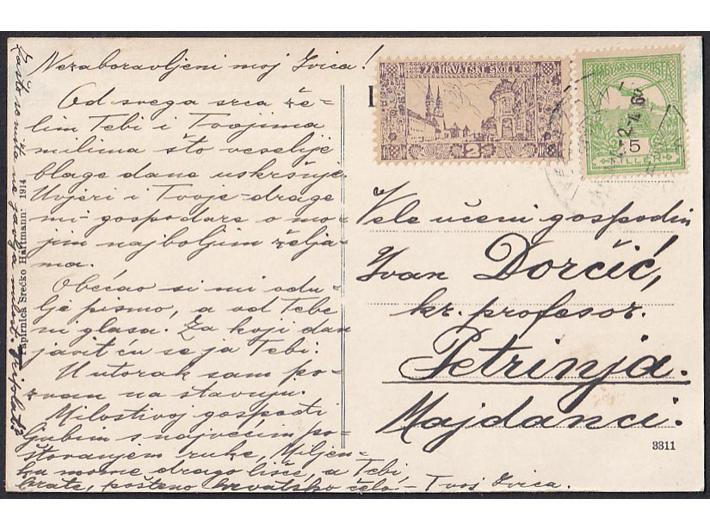 Nezaboravljeni moj Ivica!
Od svega srca že-
lim Tebi i Tvojima
milima što veselije
blage dane uskršnje.
Uvjeri i Tvoje drage
mi gospodare o mo-
jim najboljim želja-
ma.
Obećao si mi odu-
lje pismo, a od Tebe
ni glasa. Za koji dan
javit ću se ja Tebi.
U utorak sam po-
zvan na stavnju.
Milostivoj gospođi
ljubim s najvećim po-
štovanjem ruke, Miljen-
ku mome drago lišce, a Tebi
brate, pošteno hrvatsko čelo - Tvoj Ivica.
Zašto
Papirnica Srećko Hartmann 1914
ZA HRVATSKE
2
MAGYAR KIR. POSTA
5
FILLER
Vele učeni gospodin
Ivan Dorčić,
kr. profesor.
Petrinja.
Majdanci.
3311